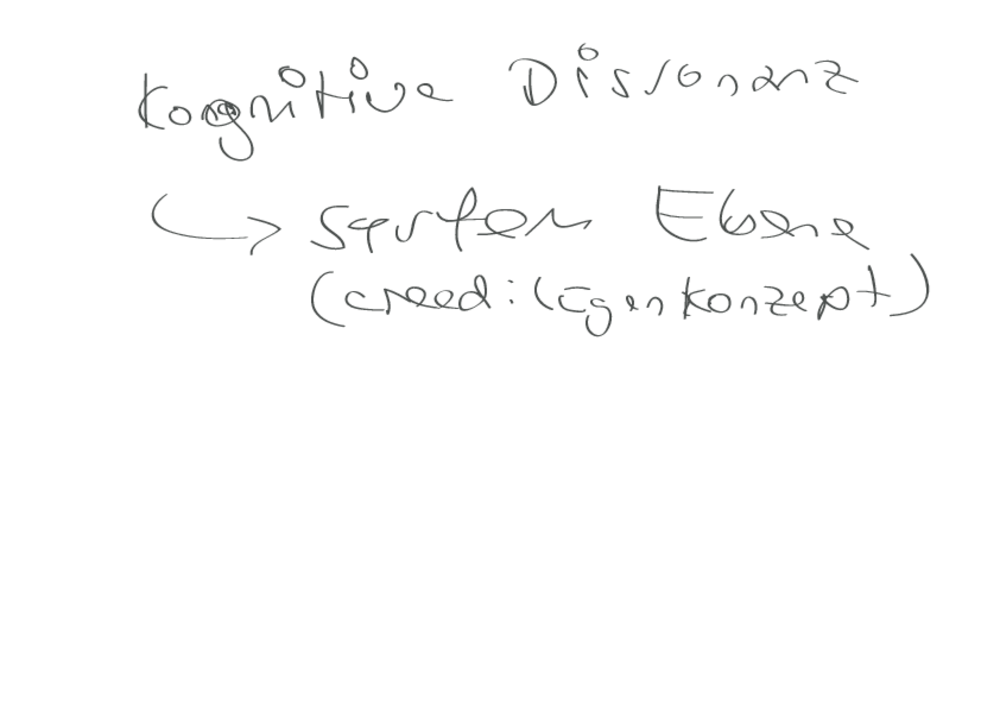 Kognitive Dissonanz
↳ System Ebene
(creed: Eigenkonzept)